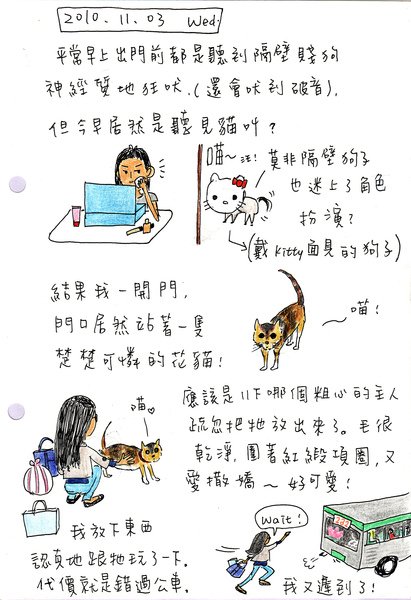 2010.11.03 Wed.
平常早上出門前都是聽到隔壁賤狗
神經質地狂吠.(還會吠到破音).
但今早居然是聽見貓叫?
喵~汪!
莫非隔壁狗子
也迷上了角色
扮演?
(戴Kitty面具的狗子)
結果我一開門,
門口居然站著一隻
楚楚可憐的花貓!
喵!
應該是1F哪個粗心的主人
疏忽把牠放出來了。毛很
乾淨,圍著紅緞項圈,又
愛撒嬌~好可愛!
喵
我放下東西
認真地跟牠玩了一下.
代價就是錯過公車.
Wait!
我又遲到了!